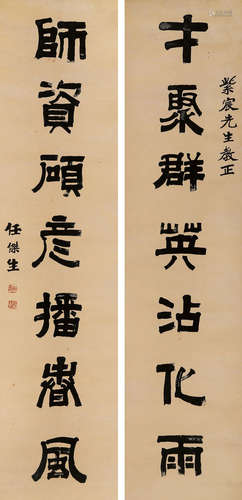 紫宸先生教正
才聚群英沾化雨
師資碩彥播春風
任傑生